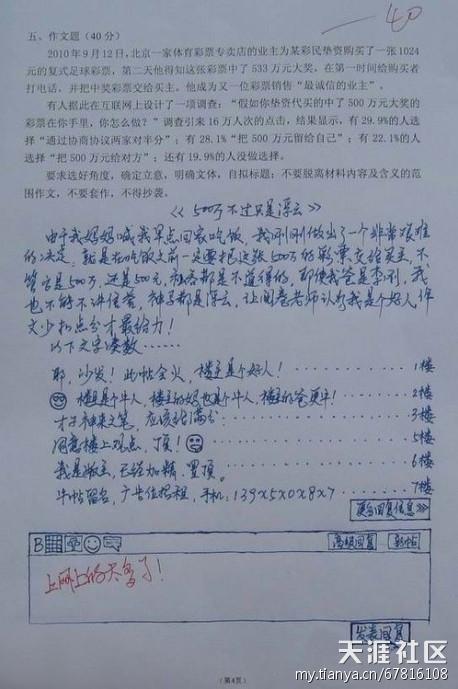 -40
五、作文题(40分)
2010年9月12日,北京一家体育彩票专卖店的业主为某彩民垫资购买了一张1024
元的复式足球彩票,第二天他得知这张彩票中了533万元大奖,在第一时间给购买者
打电话,并把中奖彩票交给买主。他成为又一位彩票销售“最诚信的业主”。
有人据此在互联网上设计了一项调查:“假如你垫资代买的中了500万元大奖的
彩票在你手里,你怎么做?”调查引来16万人次的点击,结果显示,有29.9%的人选
择“通过协商协议两家对半分”;有28.1%“把500万元留给自己”;有22.1%的人
选择“把500万元给对方”;还有19.9%的人没做选择。
要求选好角度,确定立意,明确文体,自拟标题;不要脱离材料内容及含义的范
围作文,不要套作,不得抄袭。
《500万不过只是浮云》
由于我妈妈喊我早点回家吃饭,我刚刚做出了一个非常艰难
的决定:就是在吃饭之前一定要把这张500万的彩票交给买主,不
管它是500万,还是500元,私吞都是不道德的,即使我爸是李刚,我
也不能不讲信誉,神马都是浮云,让阅卷老师认为我是个好人,作
文少扣点分才最给力!
以下文字凑数……
耶,沙发!此帖会火,楼主是个好人!……1楼
楼主是个牛人,楼主的妈也是个牛人,楼主的爸更牛!…2楼
才子神来之笔,应该给满分……3楼
同意楼上观点,顶!……5楼
我是版主,已经加精、置顶。……6楼
牛帖留名,广告位招租,手机:139x5x0x8x7…7楼
更多回复信息》
B
高级回复 新帖
上网上的太多了!
发表回复
(第4页)
天涯社区
my.tianya.cn/67816108